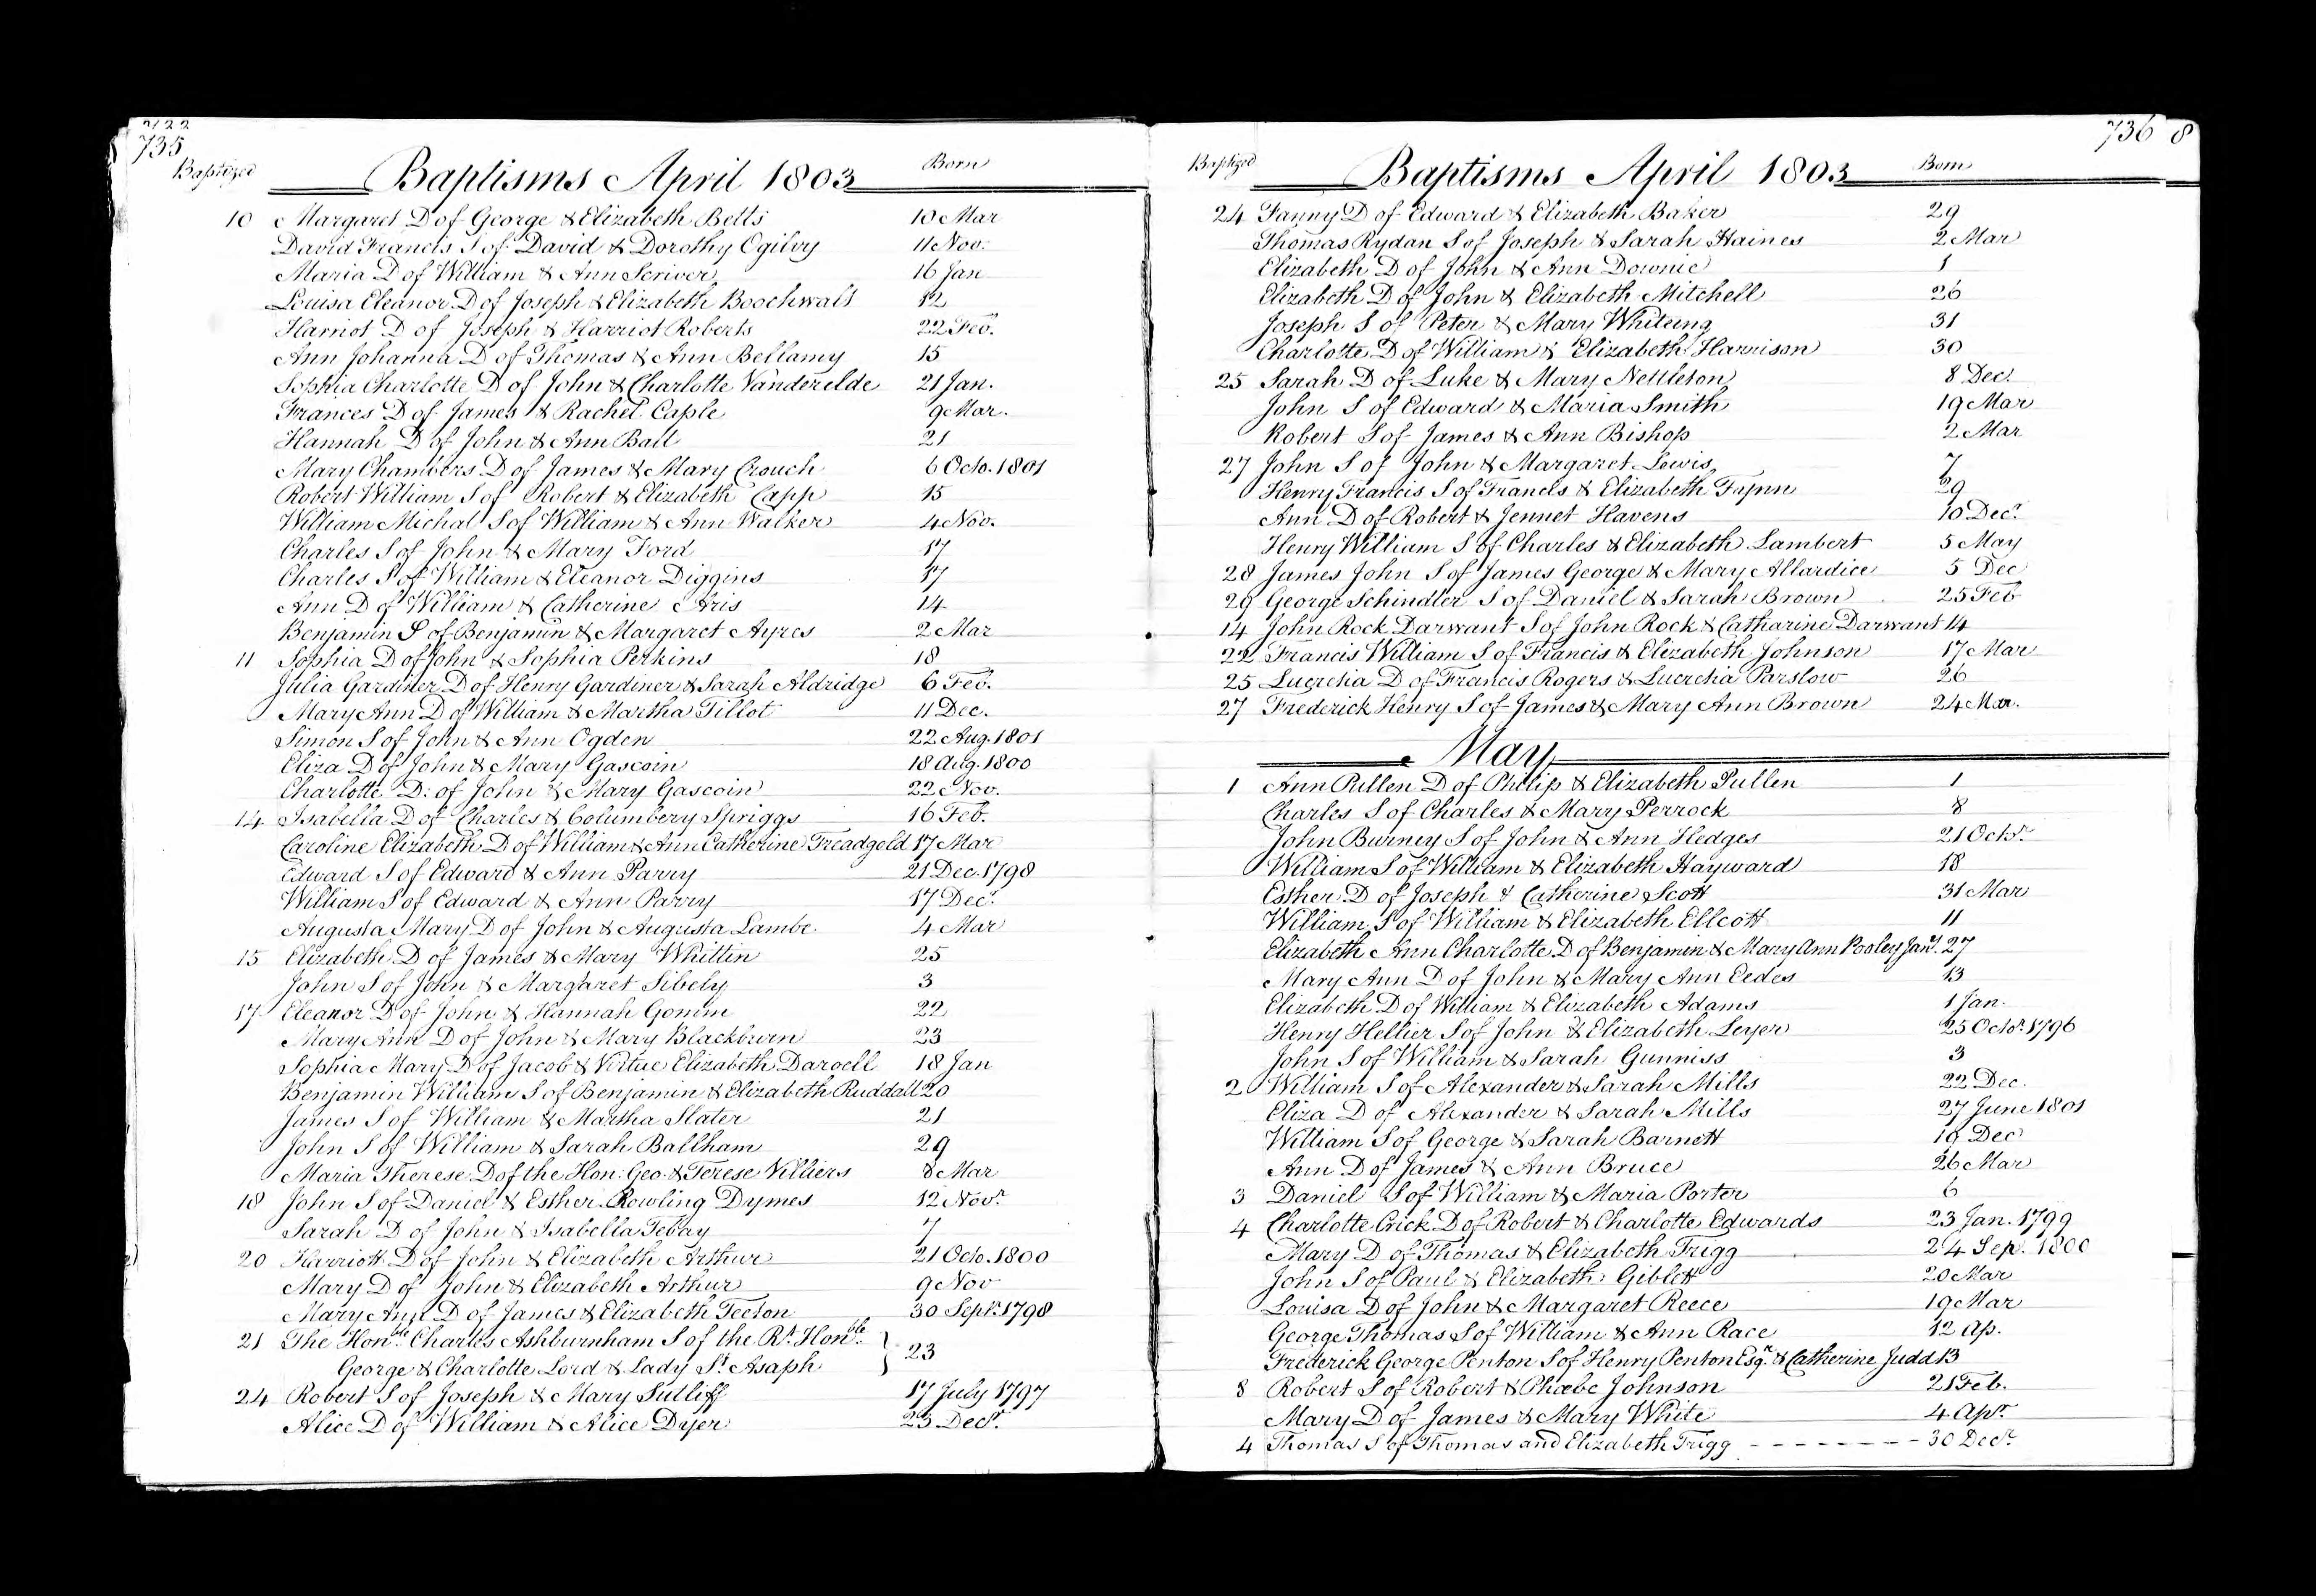 735
Baptized Baptisms April 1803 Born
10 Margaret D of George & Elizabeth Betts 10 Mar
David Francis S of David & Dorothy Ogilvy 11 Nov.
Maria D of William & Ann Scriver 16 Jan
Louisa Eleanor D of Joseph & Elizabeth Boochwalt 12
Harriot D of Joseph & Harriot Roberts 22 Feb.
Ann Johanna D of Thomas & Ann Bellamy 15
Sophia Charlotte D of John & Charlotte Vanderelde 21 Jan.
Frances D of James & Rachel Caple 9 Mar.
Hannah D of John & Ann Ball 21
Mary Chambers D of James & Mary Crouch 6 Octo. 1801
Robert William S of Robert & Elizabeth Capp 15
William Michal S of William & Ann Walker 4 Nov.
Charles S of John & Mary Ford 17
Charles S of William & Eleanor Diggins 17
Ann D of William & Catherine Aris 14
Benjamin S of Benjamin & Margaret Ayres 2 Mar
11 Sophia D of John & Sophia Perkins 18
Julia Gardiner D of Henry Gardiner & Sarah Aldridge 6 Feb.
Mary Ann D of William & Martha Tillot 11 Dec.
Simon S of John & Ann Ogden 22 Aug. 1801
Eliza D of John & Mary Gascoin 18 Aug. 1800
Charlotte D: of John & Mary Gascoin 22 Nov.
14 Isabella D of Charles & Columbery Spriggs 16 Feb.
Caroline Elizabeth D of William & Ann Catherine Treadgold 17 Mar
Edward S of Edward & Ann Parry 21 Dec. 1798
William S of Edward & Ann Parry 17 Decr.
Augusta Mary D of John & Augusta Lambe 4 Mar
15 Elizabeth D of James & Mary Whittin 25
John S of John & Margaret Sibely 3
17 Eleanor D of John & Hannah Gomm 22
Mary Ann D of John & Mary Blackburn 23
Sophia Mary D of Jacob & Virtue Elizabeth Darvell 18 Jan
Benjamin William S of Benjamin & Elizabeth Ruddall 20
James S of William & Martha Slater 21
John S of William & Sarah Ballham 29
Maria Therese D of the Hon: Geo. & Terese Villiers 8 Mar
18 John S of Daniel & Esther Rowling Dymes 12 Novr.
Sarah D of John & Isabella Tebay 7
20 Harriott D of John & Elizabeth Arthur 21 Octo. 1800
Mary D of John & Elizabeth Arthur 9 Nov
Mary Ann D of James & Elizabeth Teeton 30 Sepr. 1798
21 The Honble. Charles Ashburnham S of the Rt. Honble.
George & Charlotte Lord & Lady St. Asaph } 23
24 Robert S of Joseph & Mary Sutliff 17 July 1797
Alice D of William & Alice Dyer 25 Decr.
736 8
Baptized Baptisms April 1803 Born
24 Fanny D of Edward & Elizabeth Baker 29
Thomas Rydan S of Joseph & Sarah Haines 2 Mar
Elizabeth D of John & Ann Downie 1
Elizabeth D of John & Elizabeth Mitchell 26
Joseph S of Peter & Mary Whiteing 31
Charlotte D of William & Elizabeth Harrison 30
25 Sarah D of Luke & Mary Nettleton 8 Dec.
John S of Edward & Maria Smith 19 Mar
Robert S of James & Ann Bishop 2 Mar
27 John S of John & Margaret Lewis 7
Henry Francis S of Francis & Elizabeth Fapnn 29
Ann D of Robert & Jennet Havens 10 Decr.
Henry William S of Charles & Elizabeth Lambert 5 May
28 James John S of James George & Mary Allardice 5 Dec
29 George Schindler S of Daniel & Sarah Brown 25 Feb
14 John Rock Darwant S of John Rock & Catharine Darwant 14
22 Francis William S of Francis & Elizabeth Johnson 17 Mar
25 Lucretia D of Francis Rogers & Lucretia Parslow 26
27 Frederick Henry S of James & Mary Ann Brown 24 Mar.
May
1 Ann Pullen D of Philip & Elizabeth Pullen 1
Charles S of Charles & Mary Perrock 8
John Burney S of John & Ann Hedges 21 Octr.
William S of William & Elizabeth Hayward 18
Esther D of Joseph & Catherine Scott 31 Mar
William S of William & Elizabeth Ellcott 11
Elizabeth Ann Charlotte D of Benjamin & Mary Ann Pooley Jany. 27
Mary Ann D of John & Mary Ann Eedes 13
Elizabeth D of William & Elizabeth Adams 1 Jan.
Henry Hellier S of John & Elizabeth Leyer 25 Octor. 1796
John S of William & Sarah Gunniss 3
2 William S of Alexander & Sarah Mills 22 Dec.
Eliza D of Alexander & Sarah Mills 27 June 1801
William S of George & Sarah Barnett 16 Dec
Ann D of James & Ann Bruce 26 Mar
3 Daniel S of William & Maria Porter 6
4 Charlotte Crick D of Robert & Charlotte Edwards 23 Jan. 1799
Mary D of Thomas & Elizabeth Trigg 24 Sep. 1800
John S of Paul & Elizabeth Giblett 20 Mar
Louisa D of John & Margaret Reece 19 Mar
George Thomas S of William & Ann Race 12 Ap.
Frederick George Penton S of Henry Penton Esqr. & Catherine Judd 13
8 Robert S of Robert & Phœbe Johnson 21 Feb.
Mary D of James & Mary White 4 Apr.
4 Thomas S of Thomas and Elizabeth Trigg - - - - - - - - 30 Decr.